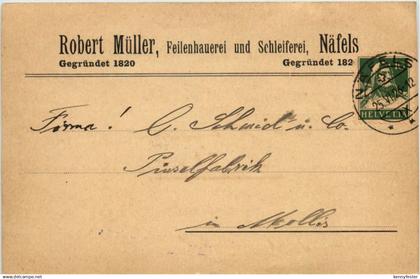 Robert Müller, Feilenhauerei und Schleiferei, Näfels
Gegründet 1820 Gegründet 182
NÄFELS
HELVETIA
Firma! C. Schmid u. Co.
Pinselfabrik
in Mollis